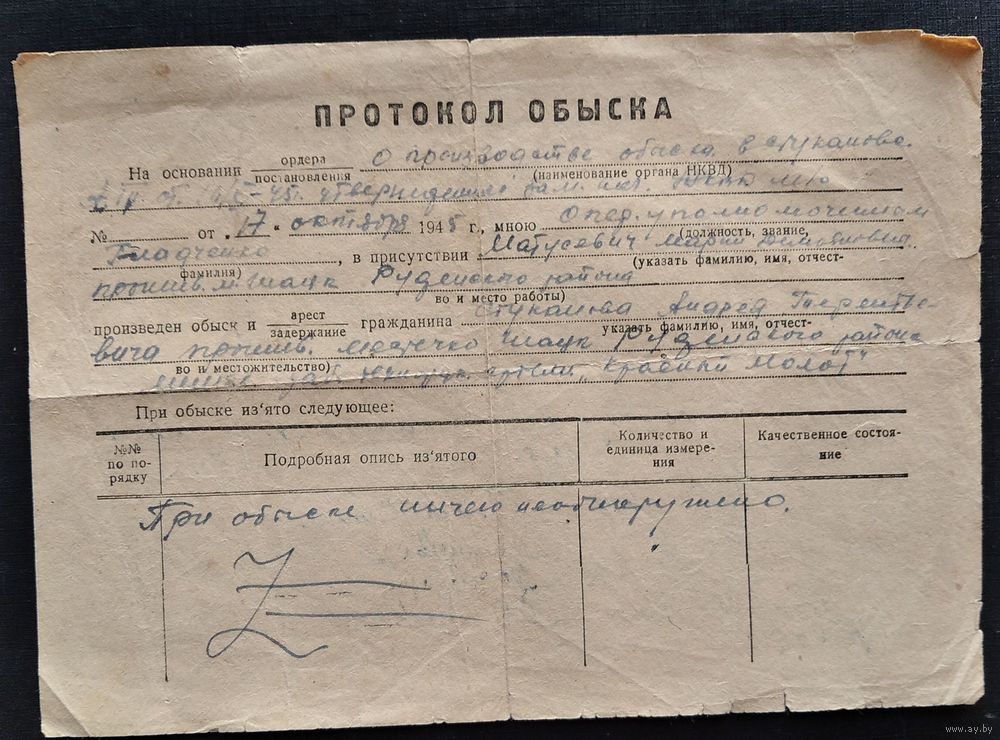 ПРОТОКОЛ ОБЫСКА
На основании ордера постановления о производстве обыска в Стуканова.
(наименование органа НКВД)
утвержденные зам. НКВД
№ от „17“ октября 1945 г., мною Опер. уполномоченном
(должность, звание,
Гладченко, в присутствии Матусевич Мария
фамилия) (указать фамилию, имя, отчест-
прожив. м. Шацк Руденского района
во и место работы)
произведен обыск и арест задержание гражданина Стуканова Андрея Теренть-
указать фамилию, имя, отчест-
вича прожив. местечко Шацк Руденского района
во и местожительство)
артели „Красный Молот“
При обыске из'ято следующее:
№№ по по-рядку
Подробная опись из'ятого
Количество и единица измере-ния
Качественное состоя-ние
При обыске ничего необнаружено.
www.ay.by